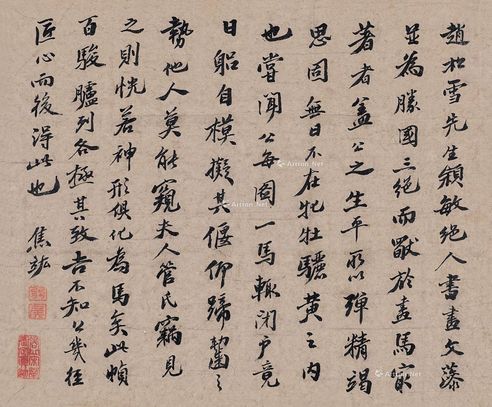 趙松雪先生穎敏絕人書畫文藻
並為勝國三絕而獸於畫馬寂
著者蓋公之生平所以殫精竭
思固無日不在牝牡驪黃之內
也嘗聞公每圖一馬輒閉戶竟
日躬自模擬其偃仰蹄齧之
勢他人莫能窺夫人管氏竊見
之則恍若神形俱化為馬矣此幀
百駿臚列各極其致吾不知公幾經
匠心而後得此也 焦竑